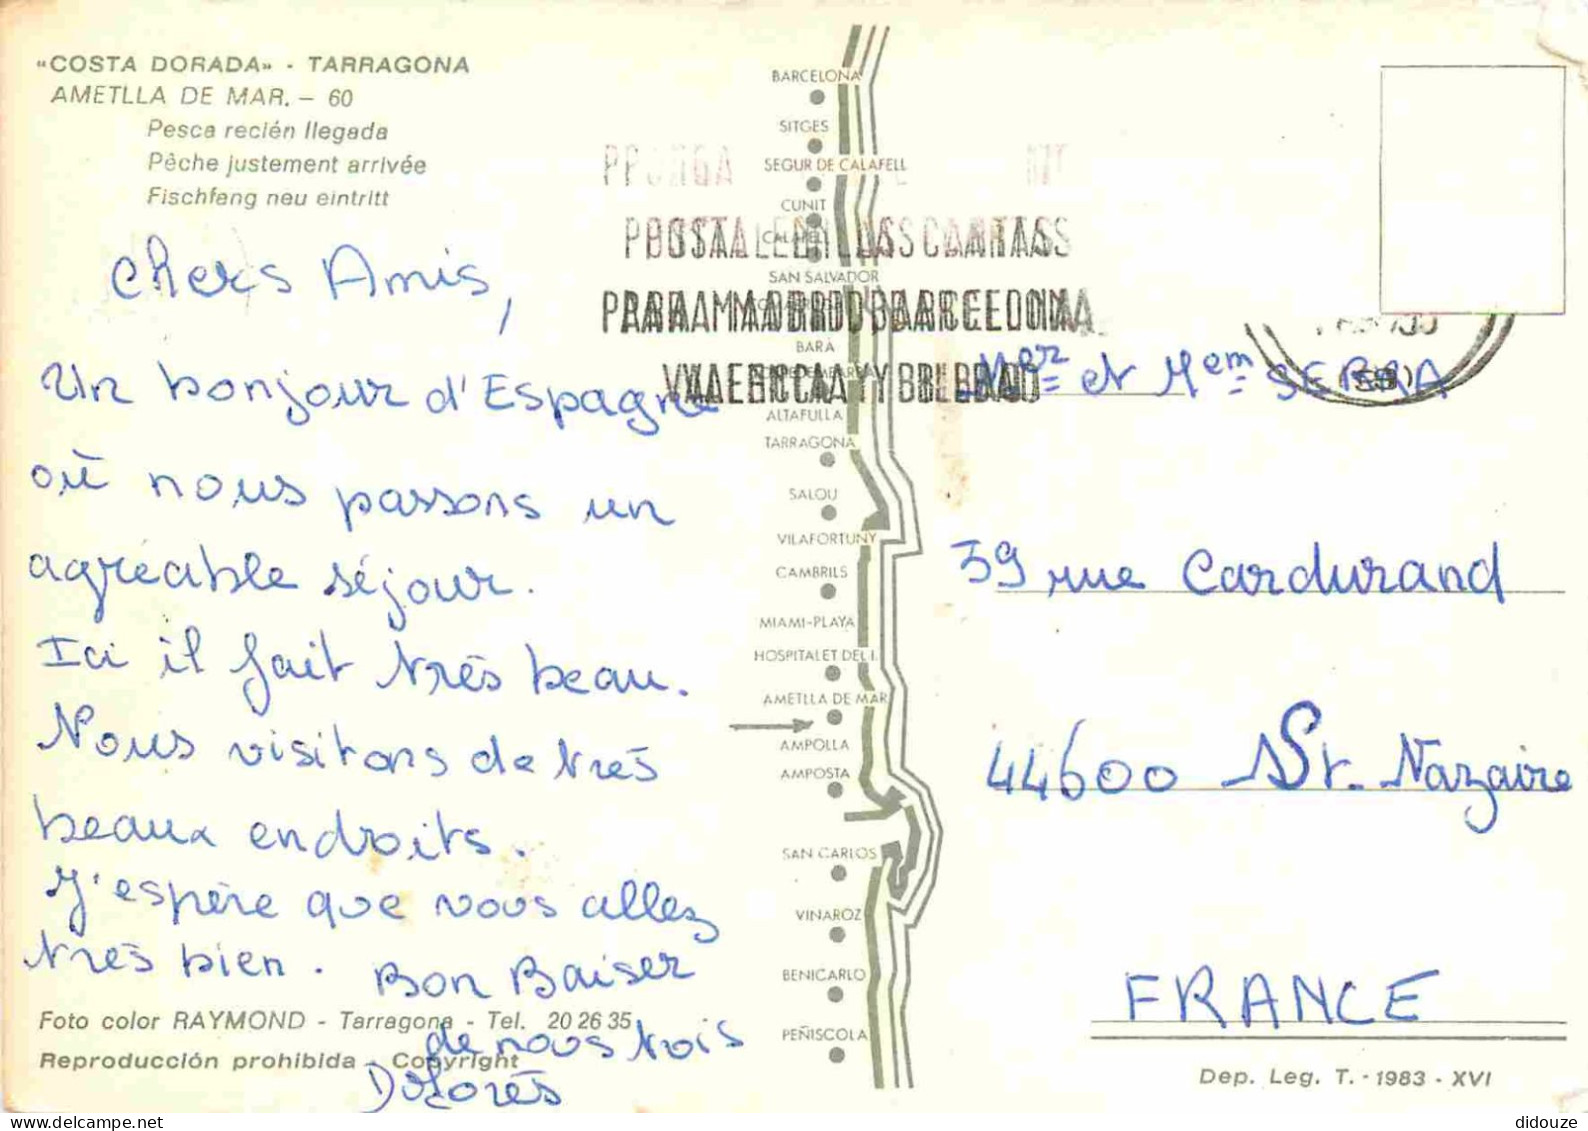 "COSTA DORADA" - TARRAGONA
AMETLLA DE MAR. - 60
Pesca recién llegada
Pêche justement arrivée
Fischfang neu eintritt
Chers Amis,
Un bonjour d'Espagne
où nous passons un
agréable séjour.
Ici il fait très beau.
Nous visitons de très
beaux endroits.
J'espère que vous allez
très bien. Bon Baiser
de nous trois
Dolorès
Foto color RAYMOND - Tarragona - Tel. 20 26 35
Reproducción prohibida - Copyright
BARCELONA
SITGES
SEGUR DE CALAFELL
CUNIT
SAN SALVADOR
BARÁ
ALTAFULLA
TARRAGONA
SALOU
VILAFORTUNY
CAMBRILS
MIAMI-PLAYA
HOSPITALET DEL I.
AMETLLA DE MAR
AMPOLLA
AMPOSTA
SAN CARLOS
VINAROZ
BENICARLO
PEÑISCOLA
PONGA
POSTAL EN LAS CARTAS
PARA MADRID BARCELONA
VALENCIA Y BILBAO
Mer et Mem SERRA
39 rue Cardurand
44600 St. Nazaire
FRANCE
Dep. Leg. T. - 1983 - XVI
didouze